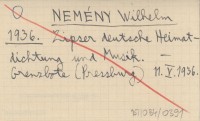 O NEMÉNY Wilhelm
1936. Zipser deutsche Heimat-
dichtung und Musik. —
Grenzbote (Pressburg) 11. V. 1936.